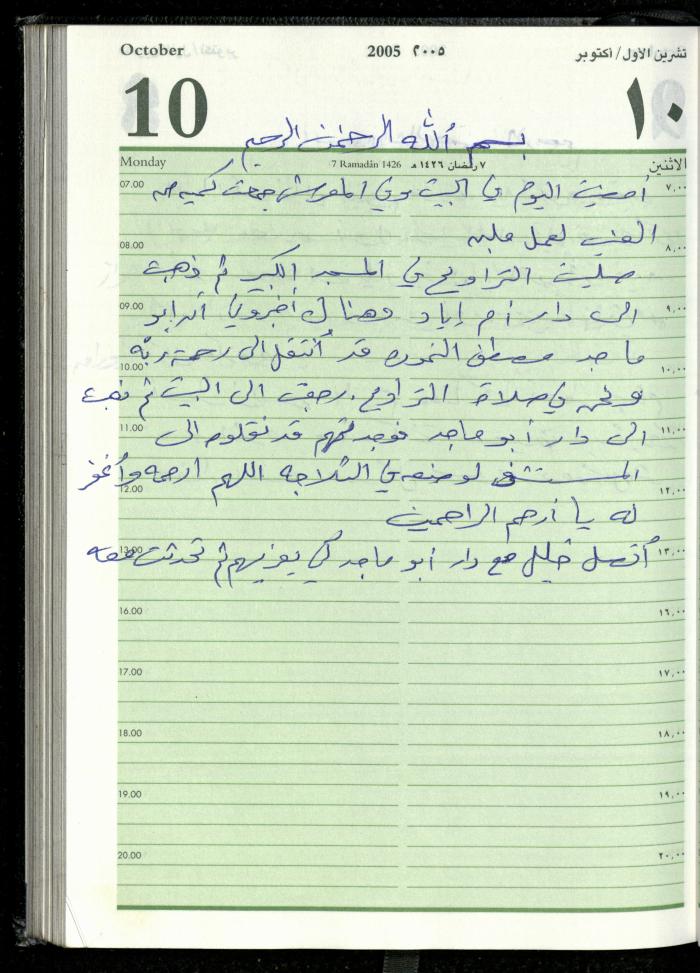 October 2005 ٢٠٠٥ تشرين الأول/أكتوبر
10 ١٠
بسم الله الرحمن الرحيم
Monday 7 Ramadân 1426 ٧ رمضان ١٤٢٦ هـ الاثنين
07.00 أمضيت اليوم في البيت وفي المعرش جمعت كميه من ٧,٠٠
العنب لعمل ملبن
08.00 ٨,٠٠
صليت التراويح في المسجد الكبير ثم ذهبت
09.00 الى دار أم إياد وهناك أخبروني أن ابو ٩,٠٠
ماجد مصطفى النموره قد أنتقل الى رحمة ربه
10.00 ١٠,٠٠
ونحن في صلاة التراويح. رجعت الى البيت ثم ذهبت
11.00 الى دار أبو ماجد فوجدتهم قد نقلوه الى ١١,٠٠
المستشفى لوضعه في الثلاجه اللهم أرحمه وأغفر
12.00 ١٢,٠٠
له يا أرحم الراحمين
13.00 أتصل خليل مع دار أبو ماجد لكي يعزيهم ثم تحدثت معه ١٣,٠٠
16.00 ١٦,٠٠
17.00 ١٧,٠٠
18.00 ١٨,٠٠
19.00 ١٩,٠٠
20.00 ٢٠,٠٠